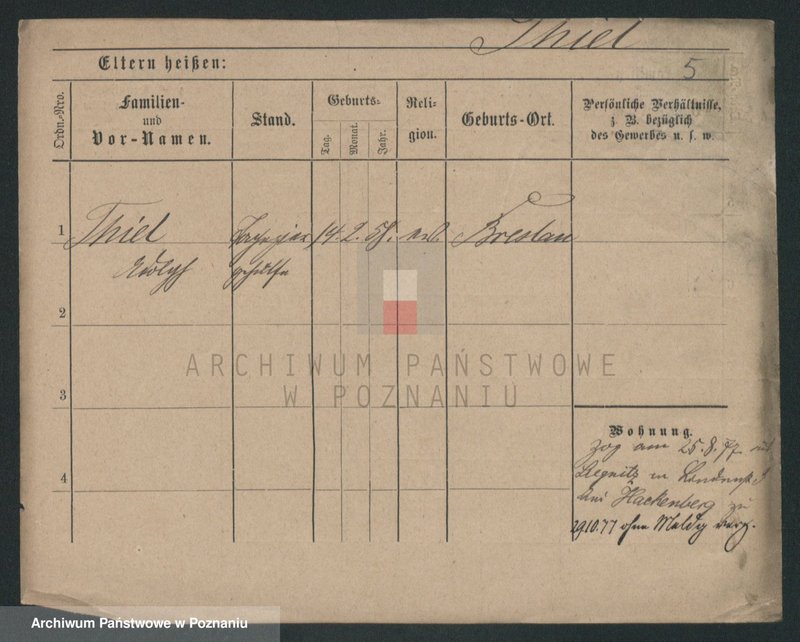 Thiel
Eltern heißen:
5
Ordn.-Nro.
Familien-
und
Vor-Namen.
Stand.
Geburts-
Tag.
Monat.
Jahr.
Reli-
gion.
Geburts-Ort.
Persönliche Verhältnisse,
z. B. bezüglich
des Gewerbes u. s. w.
1 Thiel 14. 2. 58. Breslau
Adolph gehülfe
2
ARCHIWUM PAŃSTWOWE
W POZNANIU
3
Wohnung.
zog am 25.8.77. aus
Liegnitz
bei Hackenberg zu
29.10.77 ohne Meldg verz.
4
Archiwum Państwowe w Poznaniu